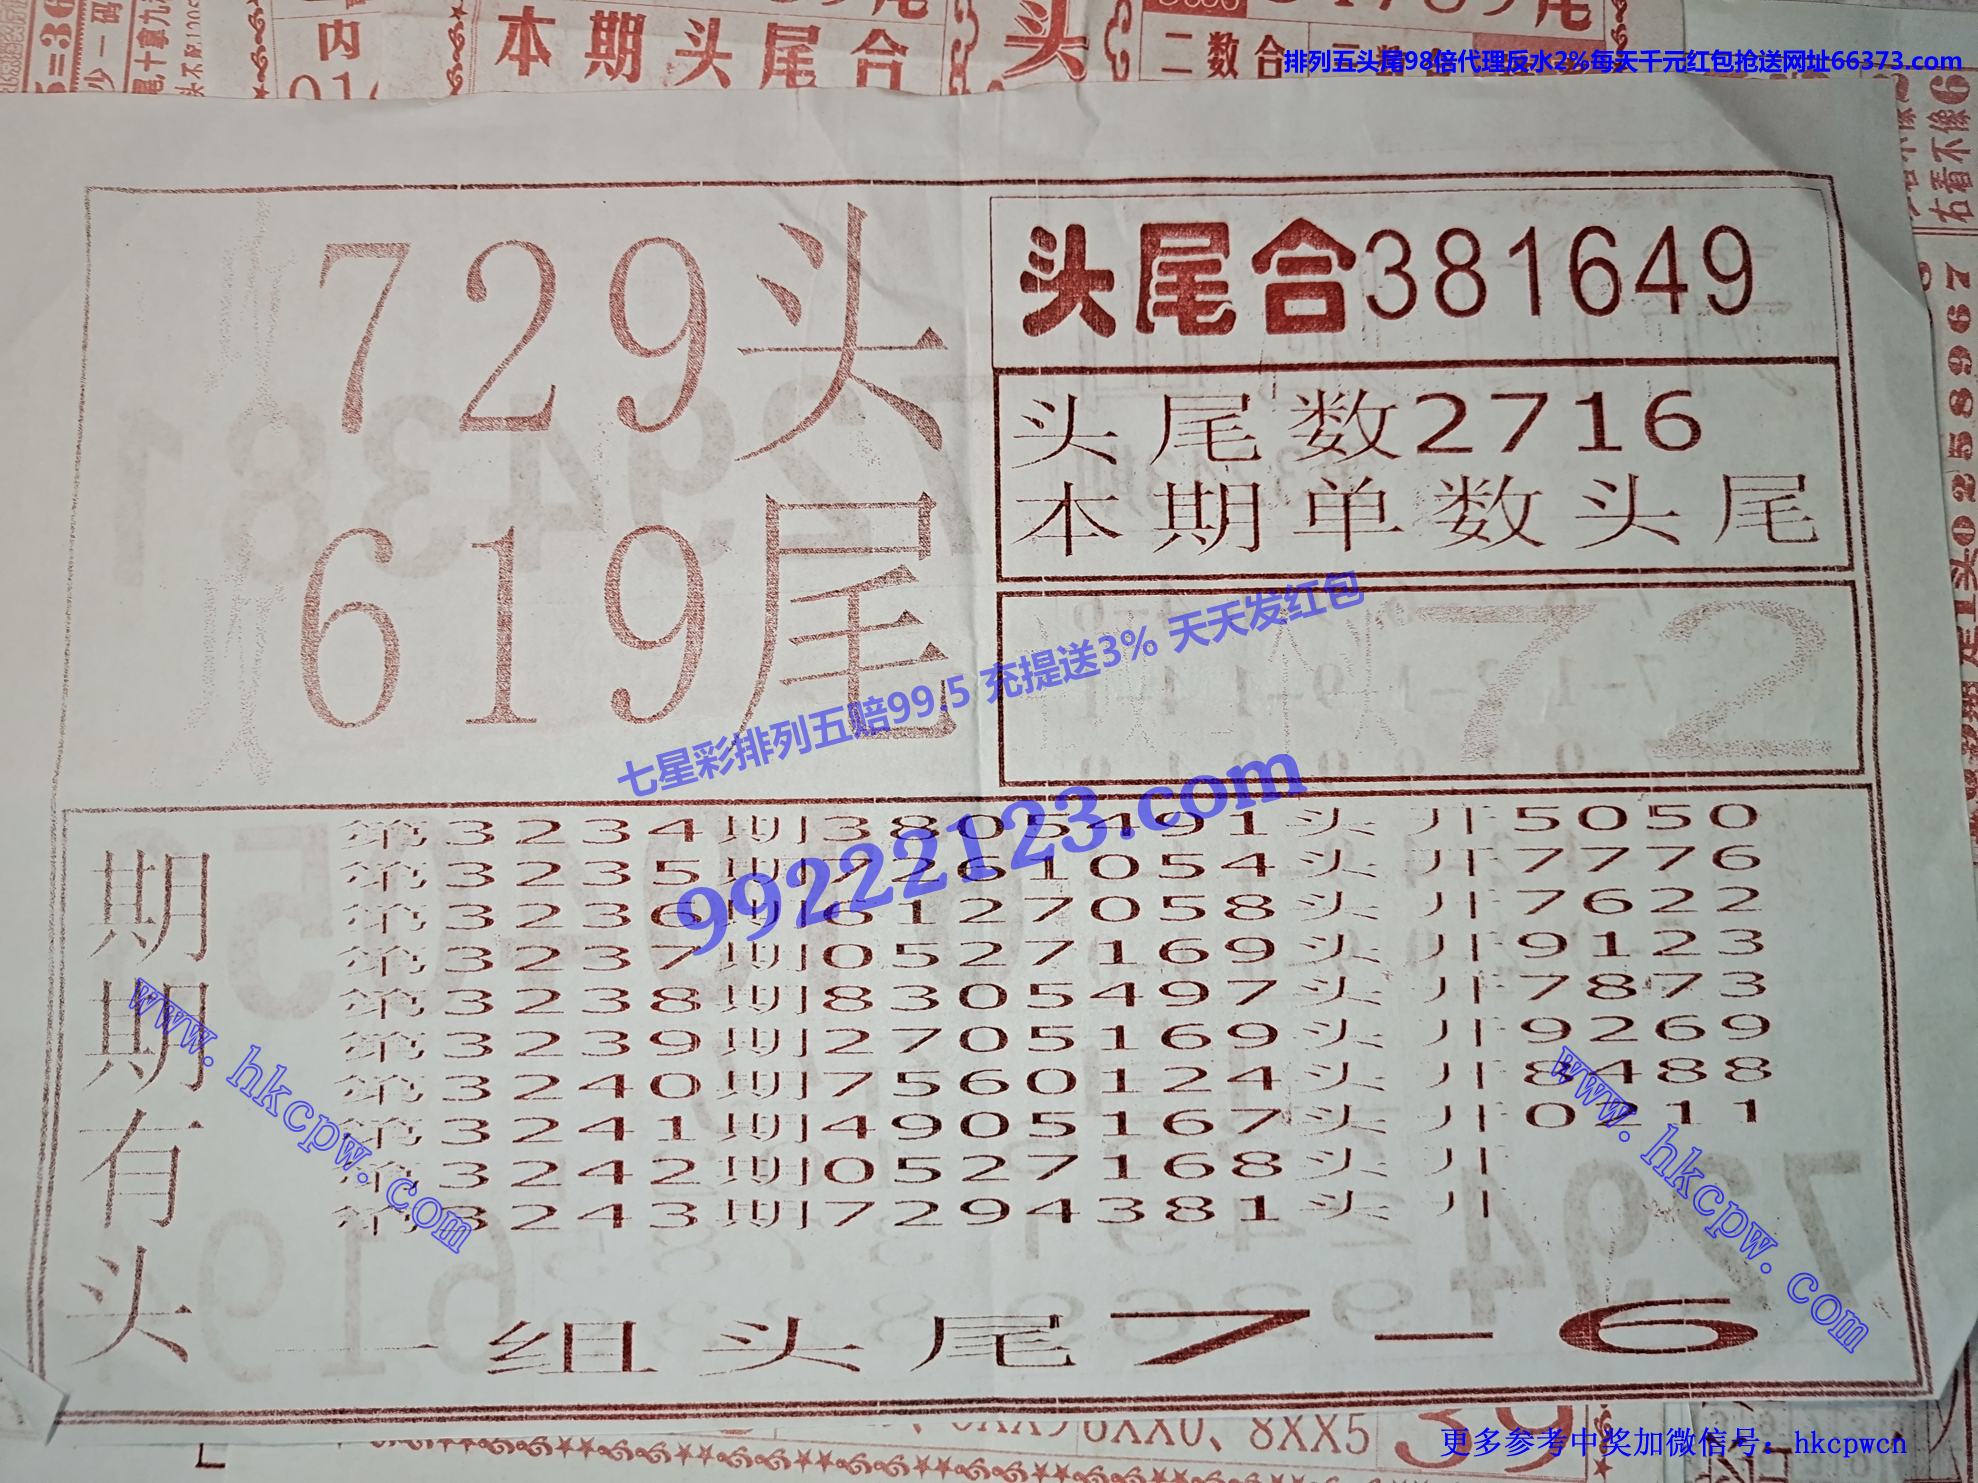 本期头尾合
二数合
排列五头尾98倍代理反水2%每天千元红包抢送网址66373.com
右看不像6
729头
619尾
头尾合381649
头尾数2716
本期单数头尾
双双72
七星彩排列五赔99.5 充提送3% 天天发红包
99222123.com
期期有头
第3234期3805491头 开5050
第3235期7261054头 开7776
第3236期6127058头 开7622
第3237期0527169头 开9123
第3238期8305497头 开7873
第3239期2705169头 开9269
第3240期7560124头 开8488
第3241期4905167头 开0211
第3242期0527168头 开
第3243期7294381头 开
一组头尾7-6
www.hkcpw.com
www.hkcpw.com
8XX5
39
更多参考中奖加微信号：hkcpwcn